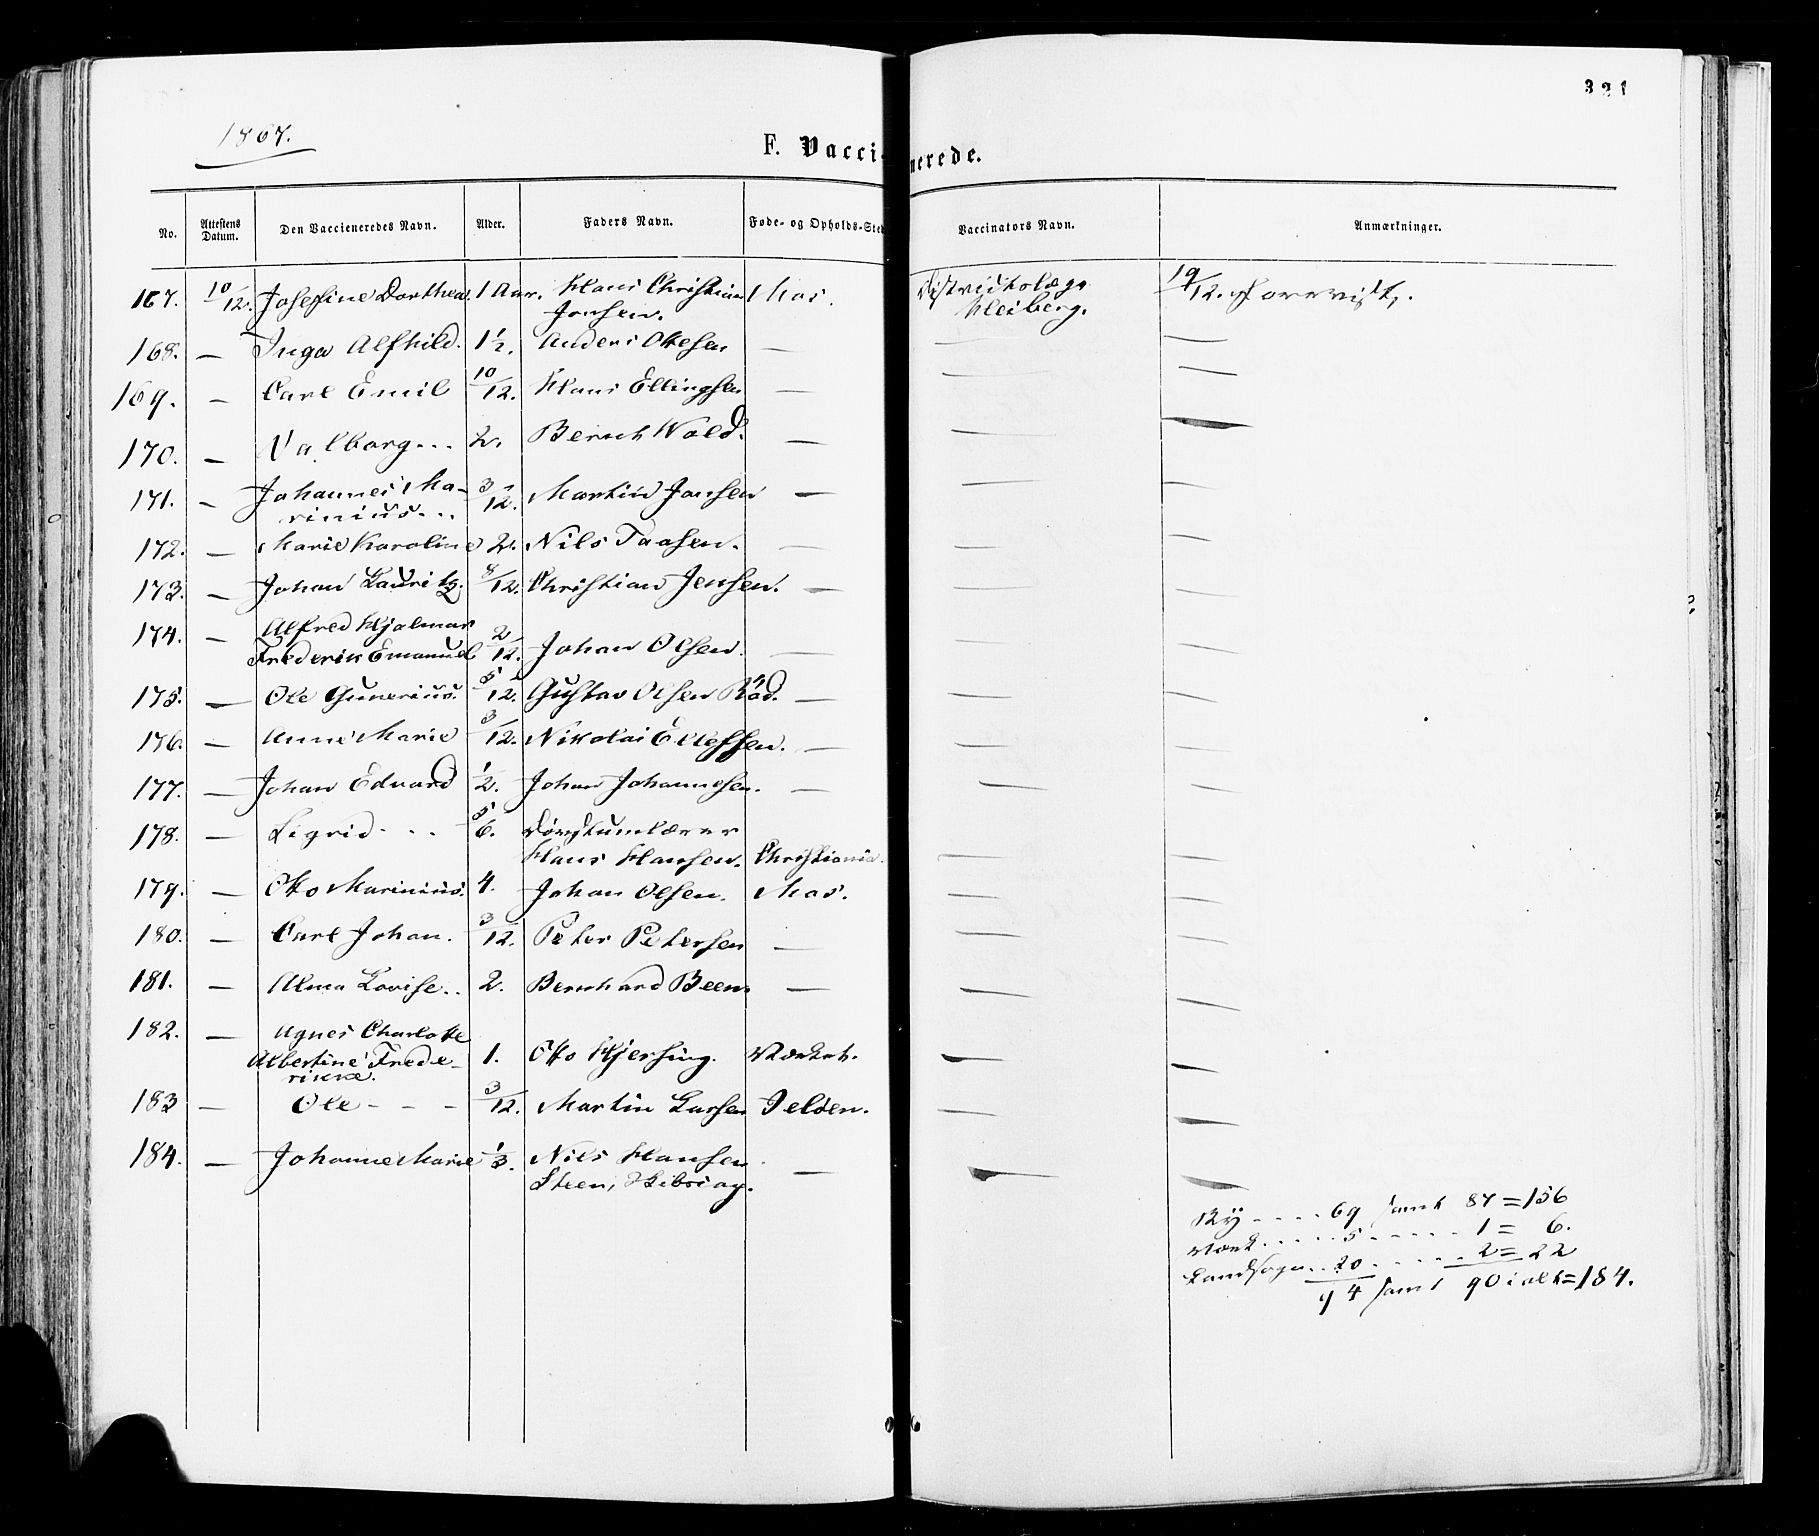 321
1867.
F. Vaccienerede.
No. Attestens Datum. Den Vaccieneredes Navn. Alder. Faders Navn. Føde- og Opholds-Sted Vaccinators Navn. Anmærkninger.
167. 10/12. Josefine Dorthea. 1 Aar. Hans Christian Mos. Districtslæge 19/12.
Jonsen. Heiberg.
168. — Inga Alfhild. 1 1/2. Anders Ottesen — — —
169. — Carl Emil 10/12. Hans Ellingsen — — —
170. — Valborg... 2. Berent Wold. — — —
171. — Johannes Ma- 3/12. Martin Jonsen — — —
rinius...
172. — Marie Karoline 2. Nils Taasen. — — —
173. — Johan Lauritz. 8/12. Christian Jensen. — — —
174. — Alfred Hjalmar
Frederik Emanuel 2/12. Johan Olsen. — — —
175. — Ole Gunerius. 5/12. Gustav Olsen Röd. — — —
176. — Anne Marie 3/12. Nikolai Ellefsen. — — —
177. — Johan Edvard 1/2. Johan Johannesen. — — —
178. — Sigrid - - - 5/6.
Hans Hansen. Christiania. — —
179. — Otto Marinius. 4. Johan Olsen. Mos. — —
180. — Carl Johan. 3/12. Peter Petersen — — —
181. — Alma Lovise.. 2. Bernhard Been. — — —
182. — Agnes Charlotte
Albertine Frede- 1. Otto Hjersing. Værket. — —
rikke.
183 — Ole - - - 3/12. Martin Larsen Jelöen. — —
184. — Johanne Marie 1/3. Nils Hansen — — —
Steen,
By .... 69 samt 87 = 156
Værk ..... 5 ..... 1 = 6.
Landsogn .. 20 ..... 2 = 22
94 samt 90 i alt = 184.